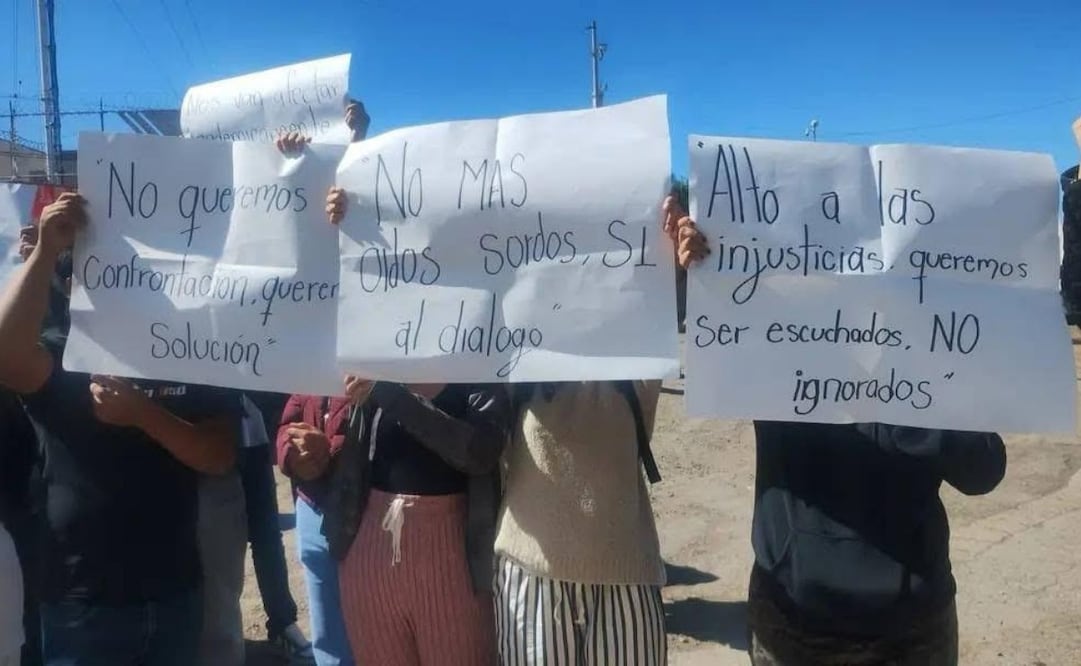 Nos van afectar
academicamente
"No queremos
Confrontación, querer
Solución"
"NO MAS
OIdos sordos, SI
al dialogo"
"Alto a las
injusticias, queremos
Ser escuchados, NO
ignorados"